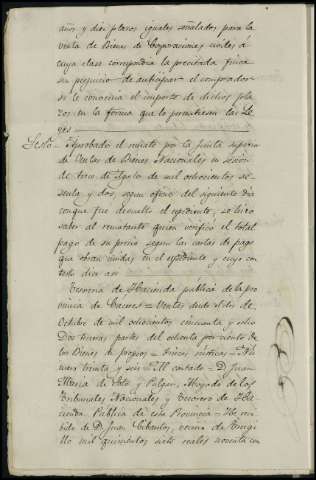 años y diez plazos iguales señalados para la
venta de Bienes de Corporaciones civiles á
cuya clase correspondia la precitada finca
sin perjuicio de anticipar el comprador
si le convenia el importe de dichos pla
zos en la forma que lo permitieran las Le
yes
Sesto = Aprobado el remate por la Junta superior
de Ventas de Bienes Nacionales en sesion
de trece de Agosto de mil ochocientos se
senta y dos, segun oficio del siguiente dia
con que fue devuelto el espediente, se hizo
saber al rematante quien verificó el total
pago de su precio segun las cartas de pago
que obran unidas en el espediente y cuyo con
testo dice asi
Tesoreria de Hacienda publica de la pro
vincia de Caceres = Ventas desde el dos de
Octubre de mil ochocientos cincuenta y ocho
Dos terceras partes del ochenta por ciento de
los Bienes de propios = Fincas rusticas = Nu
mero treinta y seis Al contado = D. Juan
Maria de Soto y Abogado de los
Tribunales Nacionales y Tesorero de Ha
cienda Publica de esta Provincia = He reci
bido de D. Juan vecino de Trugi
llo mil quinientos siete reales noventa cen